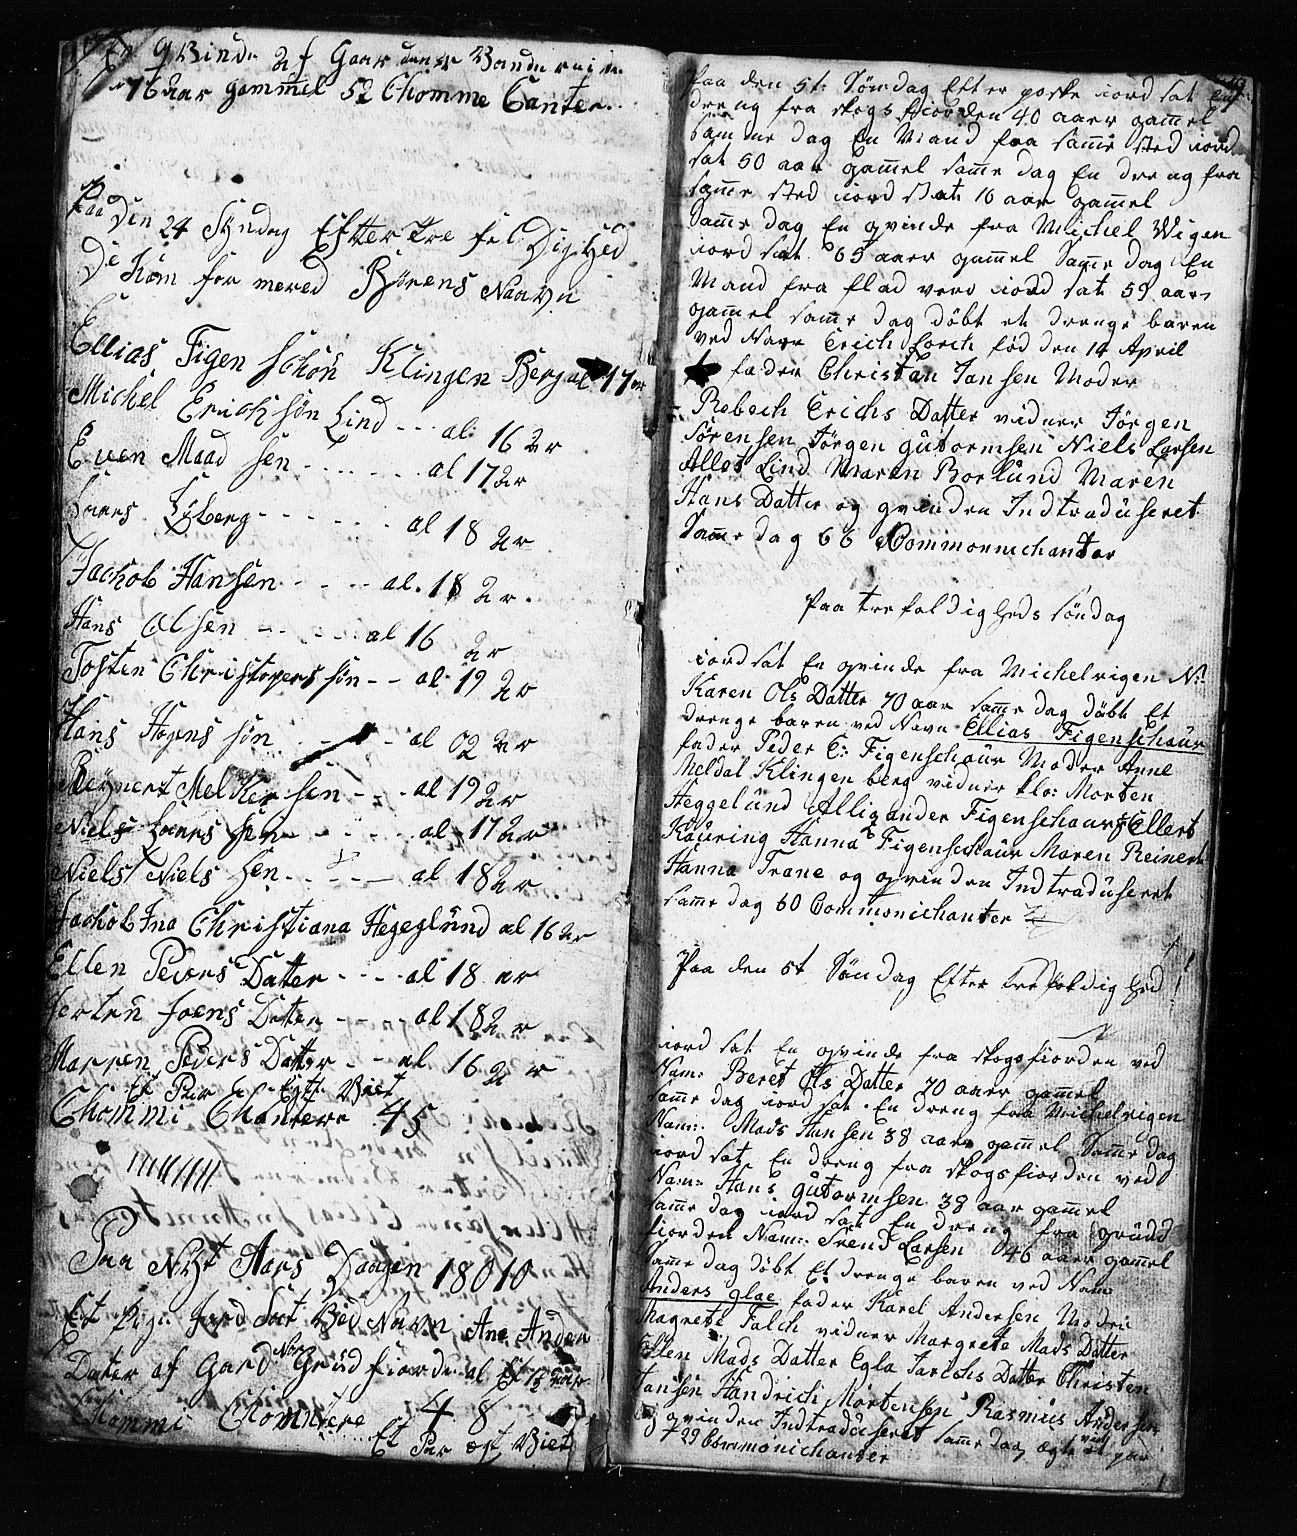 En qvinde af Gaarden Vandereide
76 aar gammel 52 Chomme Canter
Paa Den 24 Syndag Efter Tre fel Dighed
De Kom for mered Börens Naavn
Ellias Figen schou Klingen Berg al 17
Michel Erichsøn Lind --- al 16 ar
Even Maadsen ....... al 17 ar
Laars Lÿberg ------ al 18 ar
Jachob Hansen ---- al. 18 ar.
Hans Olsen ----- al 16 ar
Tosten Christopers søn -- al 19 ar
Hans Hopns søn ---- al 02 ar
Reÿnert Melkersen --- al 19 ar
Niels Laarssen ------ al 17 ar
Niels Nielssen ----- al 18 ar
Jachob Ina Christiana Hegeglünd al 16 ar
Ellen Peders Datter ---- al 18 ar
Jertru Joens Datter --- al 18 ar
Marren Peders Datter -- al 16 ar
Et Par Egte Viet
Chommi Chantere 45
Paa Nÿt Aars Daagen 18010
Et Pige Jord Sat Ved Navn Ane Ander
Dater af Gard Nore Grüdfiorde al 1½ aar
Chommi Chomntere 48
Et Par ægt Viet
Paa den 5t: Søndag Efter poske iord sat En
dreng fra skogsfiorden 40 aar gam̄el
samme dag En Mand fra sam̄e sted iord
sat 50 aar gam̄el sam̄e dag En dreng fra
sam̄e sted iord sat 16 aar gam̄el
Sam̄e dag En qvinde fra Michel Wigen
iord sat 65 aar gam̄el Sam̄e dag En
Mand fra flad verd iord sat 59 aar
gam̄el sam̄e dag döbt et drenge baren
ved Navn Erich Lorch fød den 14 April
fader Christan Jansen Moder
Rebech Erichs Datter vidner Jörgen
Sörensen Jörgen gutormsen Niels Larsen
Allet Lind Maren Borlund Maren
Hans Datter og qvinden Indtradüseret
Sam̄e dag 66 Commonnichanter
Paa trefoldigheds söndag
iord sat En qvinde fra Michelvigen N:
Karen Ols Datter 70 aar sam̄e dag döbt Et
drenge baren ved Navn Ellias Figenschaür
fader Peder E: Figenschaür Moder Anne
Meldal Klingenberg vidner klo: Morten
Heggelünd Alligander Figenschaur Ellert
Kaüring Hanna Figenschaür Maren Reinert
Hanna Trane og qvinden Indtradüseret
sam̄e dag 60 Commonichanter
Paa den 5t Søndag Efter trefoldighed
iord sat En qvinde fra skogsfiorden ved
Nam: Beret Ols Datter 70 aar gam̄el
sam̄e dag iord sat En dreng fra Michelvigen
Nam: Mads Hansen 38 aar gam̄el Sam̄e dag
iord sat En dreng fra skogsfiorden ved
Nam: Hans gütormsen 38 aar gam̄el
sam̄e dag iord sat En dreng fra grüdd
fiorden Nam: Svend Larsen 46 aar gam̄el
Sam̄e dag döbt Et drenge baren ved Nam
Anders glae fader Karel Andersen Moder
Magrete Falch vidner Margrete Mads Datter
Ellen Mads Datter Egla Jarichs Datter Christen
Jansen Handrich Mortensen Rasmüs Andersen
og qvinden Indtradüseret sam̄e dag ægte viet et par
29 Commonichanter